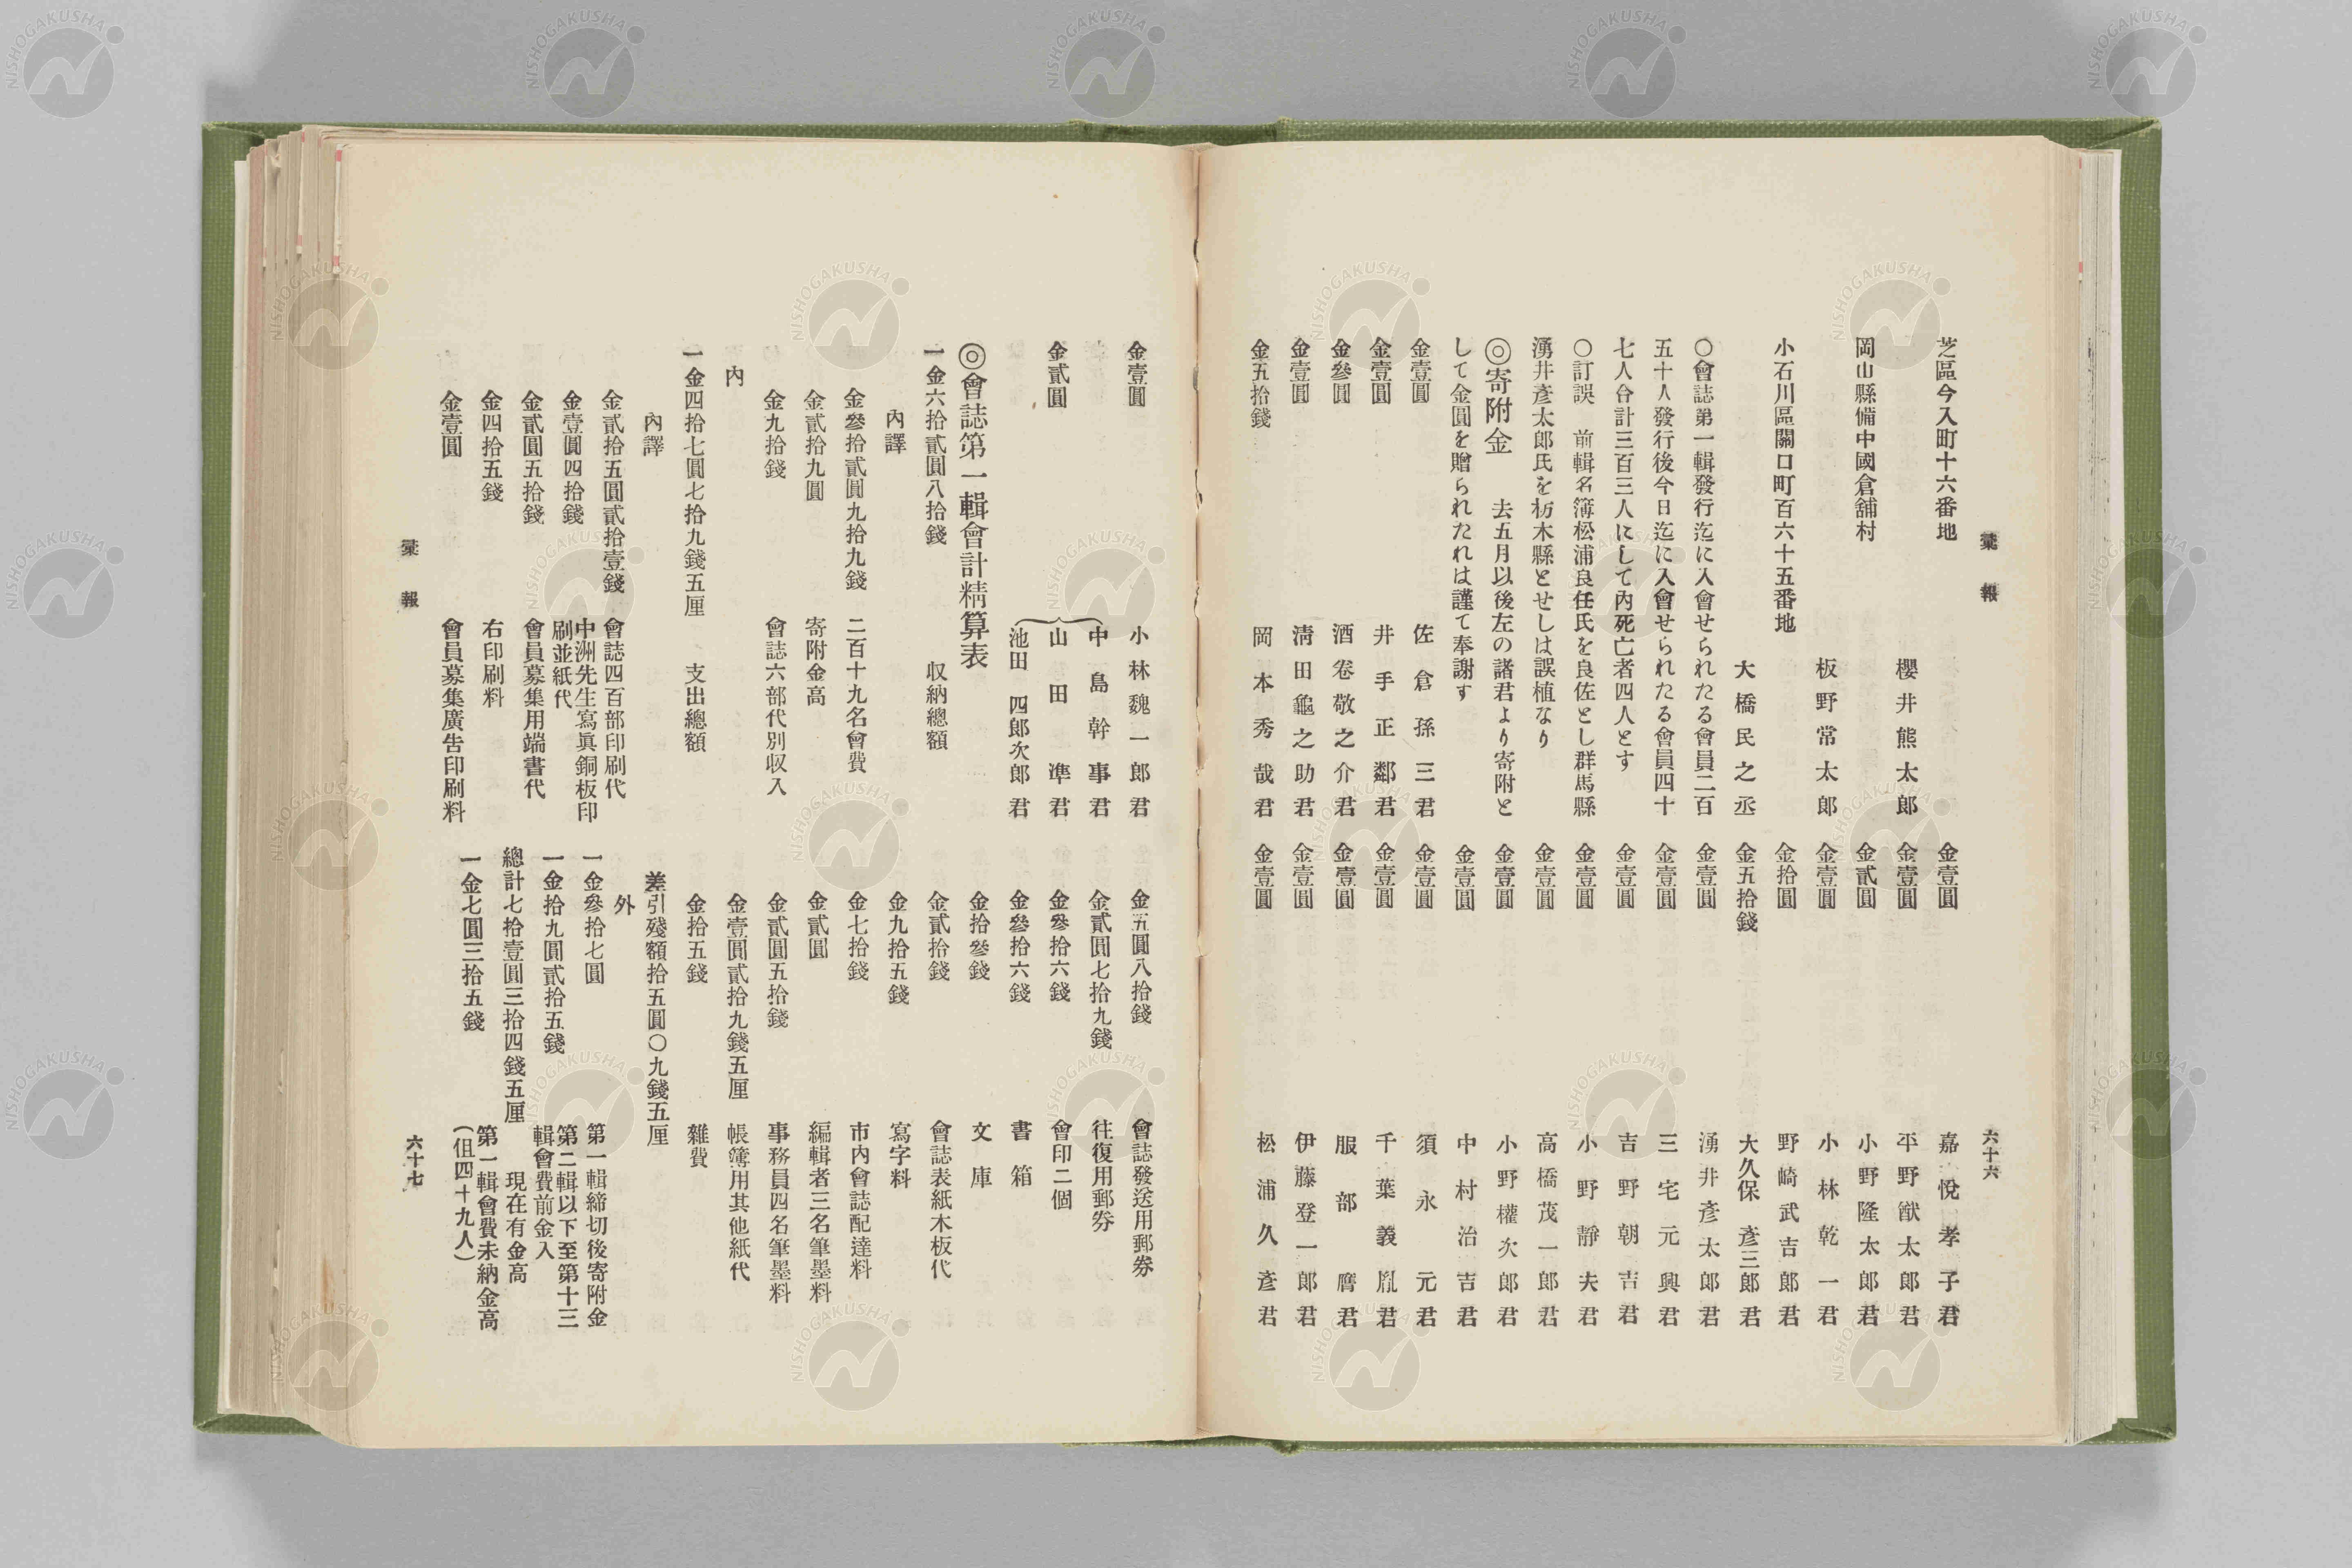 彙報
六十六
芝區今入町十六番地
櫻井熊太郎
岡山縣備中國倉舖村
板野常太郎
小石川區關口町百六十五番地
大橋民之丞
〇會誌第一輯發行迄に入會せられたる會員二百
五十人發行後今日迄に入會せられたる會員四十
七人合計三百三人にして內死亡者四人とす
〇訂誤 前輯名簿松浦良任氏を良佐とし群馬縣
湧井彥太郎氏を栃木縣とせしは誤植なり
◎寄附金 去五月以後左の諸君より寄附と
して金圓を贈られたれは謹て奉謝す
金壹圓 佐倉孫三君
金壹圓 井手正鄰君
金參圓 酒卷敬之介君
金壹圓 淸田龜之助君
金五拾錢 岡本秀哉君
金壹圓 嘉悅孝子君
金壹圓 平野猷太郎君
金貳圓 小野隆太郎君
金壹圓 小林乾一君
金拾圓 野崎武吉郎君
金五拾錢 大久保彥三郎君
金壹圓 湧井彥太郎君
金壹圓 三宅元興君
金壹圓 吉野朝吉君
金壹圓 小野靜夫君
金壹圓 高橋茂一郎君
金壹圓 小野權次郎君
金壹圓 中村治吉君
金壹圓 須永元君
金壹圓 千葉義胤君
金壹圓 服部膺君
金壹圓 伊藤登一郎君
金壹圓 松浦久彥君
金壹圓 小林魏一郎君
中島幹事君
金貳圓 山田準君
池田四郎次郎君
◎會誌第一輯會計精算表
一金六拾貳圓八拾錢 収納總額
內譯
金參拾貳圓九拾九錢 二百十九名會費
金貳拾九圓 寄附金高
金九拾錢 會誌六部代別収入
內
一金四拾七圓七拾九錢五厘 支出總額
內譯
金貳拾五圓貳拾壹錢 會誌四百部印刷代
金壹圓四拾錢 中洲先生寫眞銅板印
刷並紙代
金貳圓五拾錢 會員募集用端書代
金四拾五錢 右印刷料
金壹圓 會員募集廣告印刷料
金五圓八拾錢 會誌發送用郵劵
金貳圓七拾九錢 往復用郵劵
金參拾六錢 會印二個
金參拾六錢 書箱
金拾參錢 文庫
金貳拾錢 會誌表紙木板代
金九拾五錢 寫字料
金七拾錢 市內會誌配達料
金貳圓 編輯者三名筆墨料
金貳圓五拾錢 事務員四名筆墨料
金壹圓貳拾九錢五厘 帳簿用其他紙代
金拾五錢 雜費
差引殘額拾五圓〇九錢五厘
外
一金參拾七圓 第一輯締切後寄附金
一金拾九圓貳拾五錢 第二輯以下至第十三
輯會費前金入
總計七拾壹圓三拾四錢五厘 現在有金高
一金七圓三拾五錢 第一輯會費未納金高
(伹四十九人)
彙報
六十七
NISHOGAKUSHA